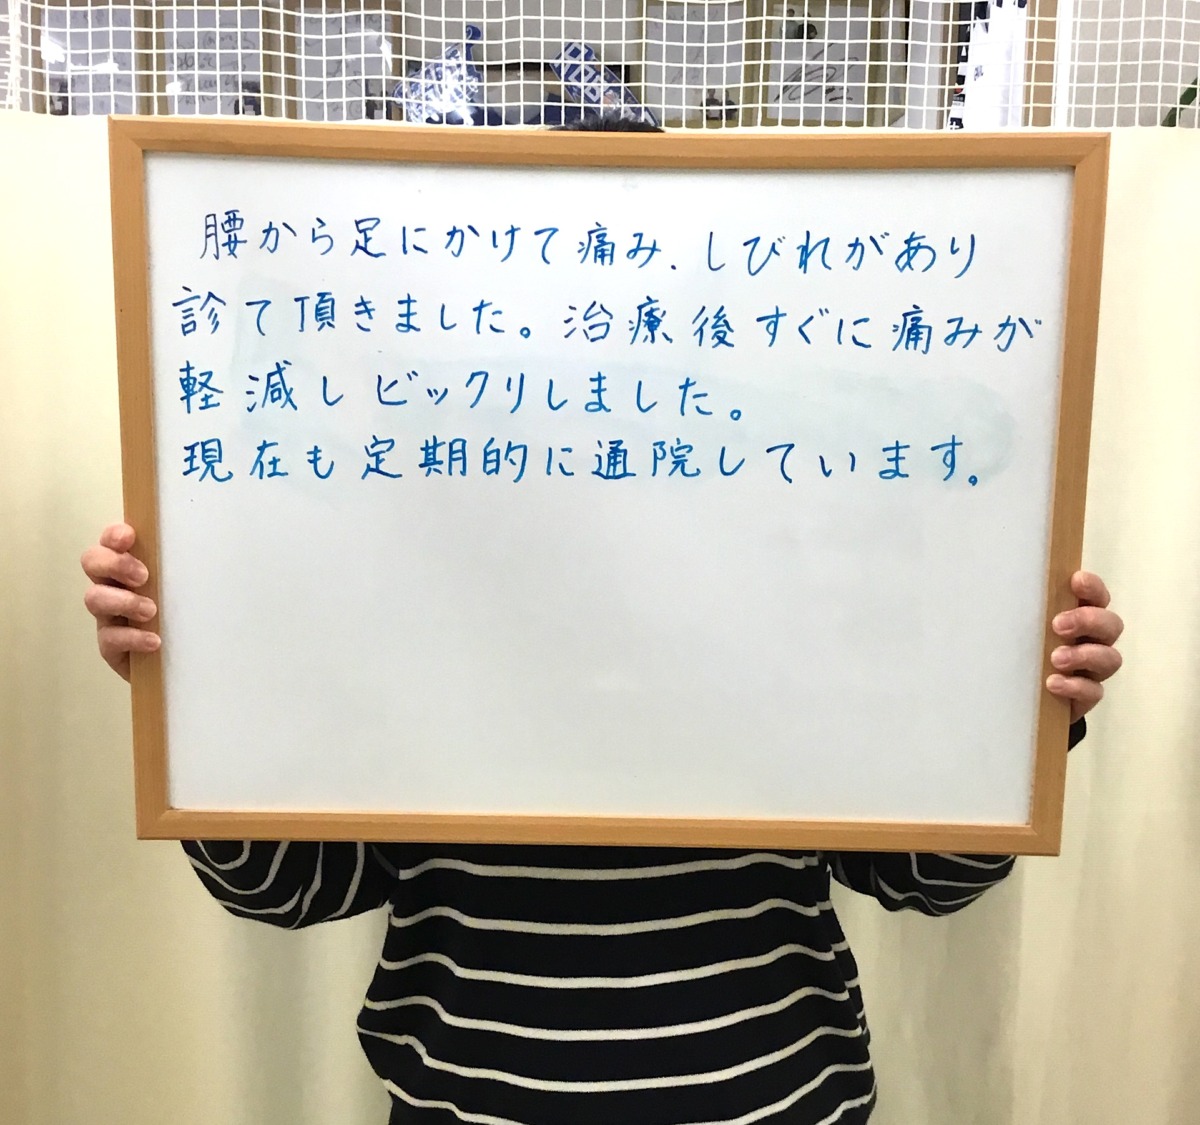 腰から足にかけて痛み、しびれがあり
診て頂きました。治療後すぐに痛みが
軽減しビックリしました。
現在も定期的に通院しています。